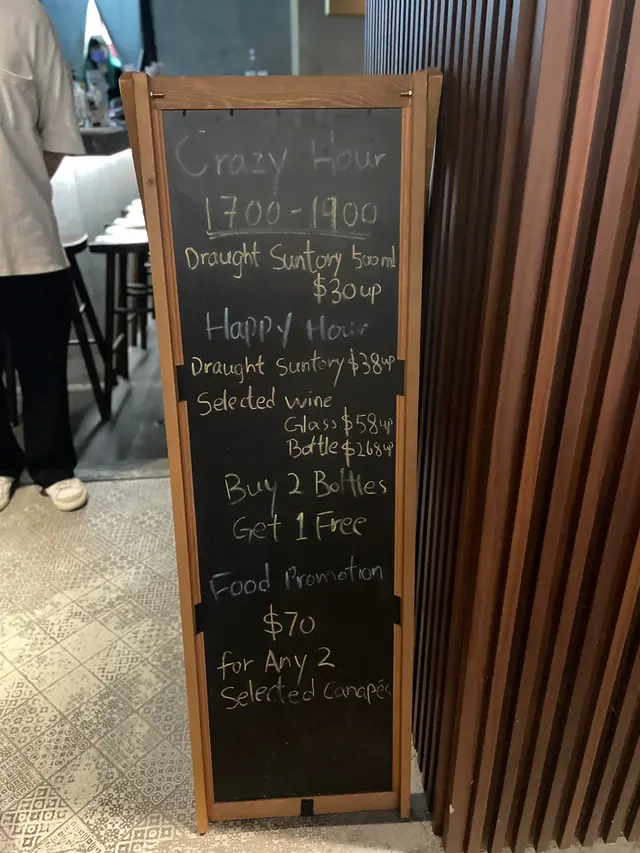 Crazy Hour
1700-1900
Draught Suntory 500ml
$30up
Happy Hour
Draught Suntory $38up
Selected wine
Glass $58up
Bottle $268up
Buy 2 Bottles
Get 1 Free
Food Promotion
$70
for Any 2
Selected Canapés